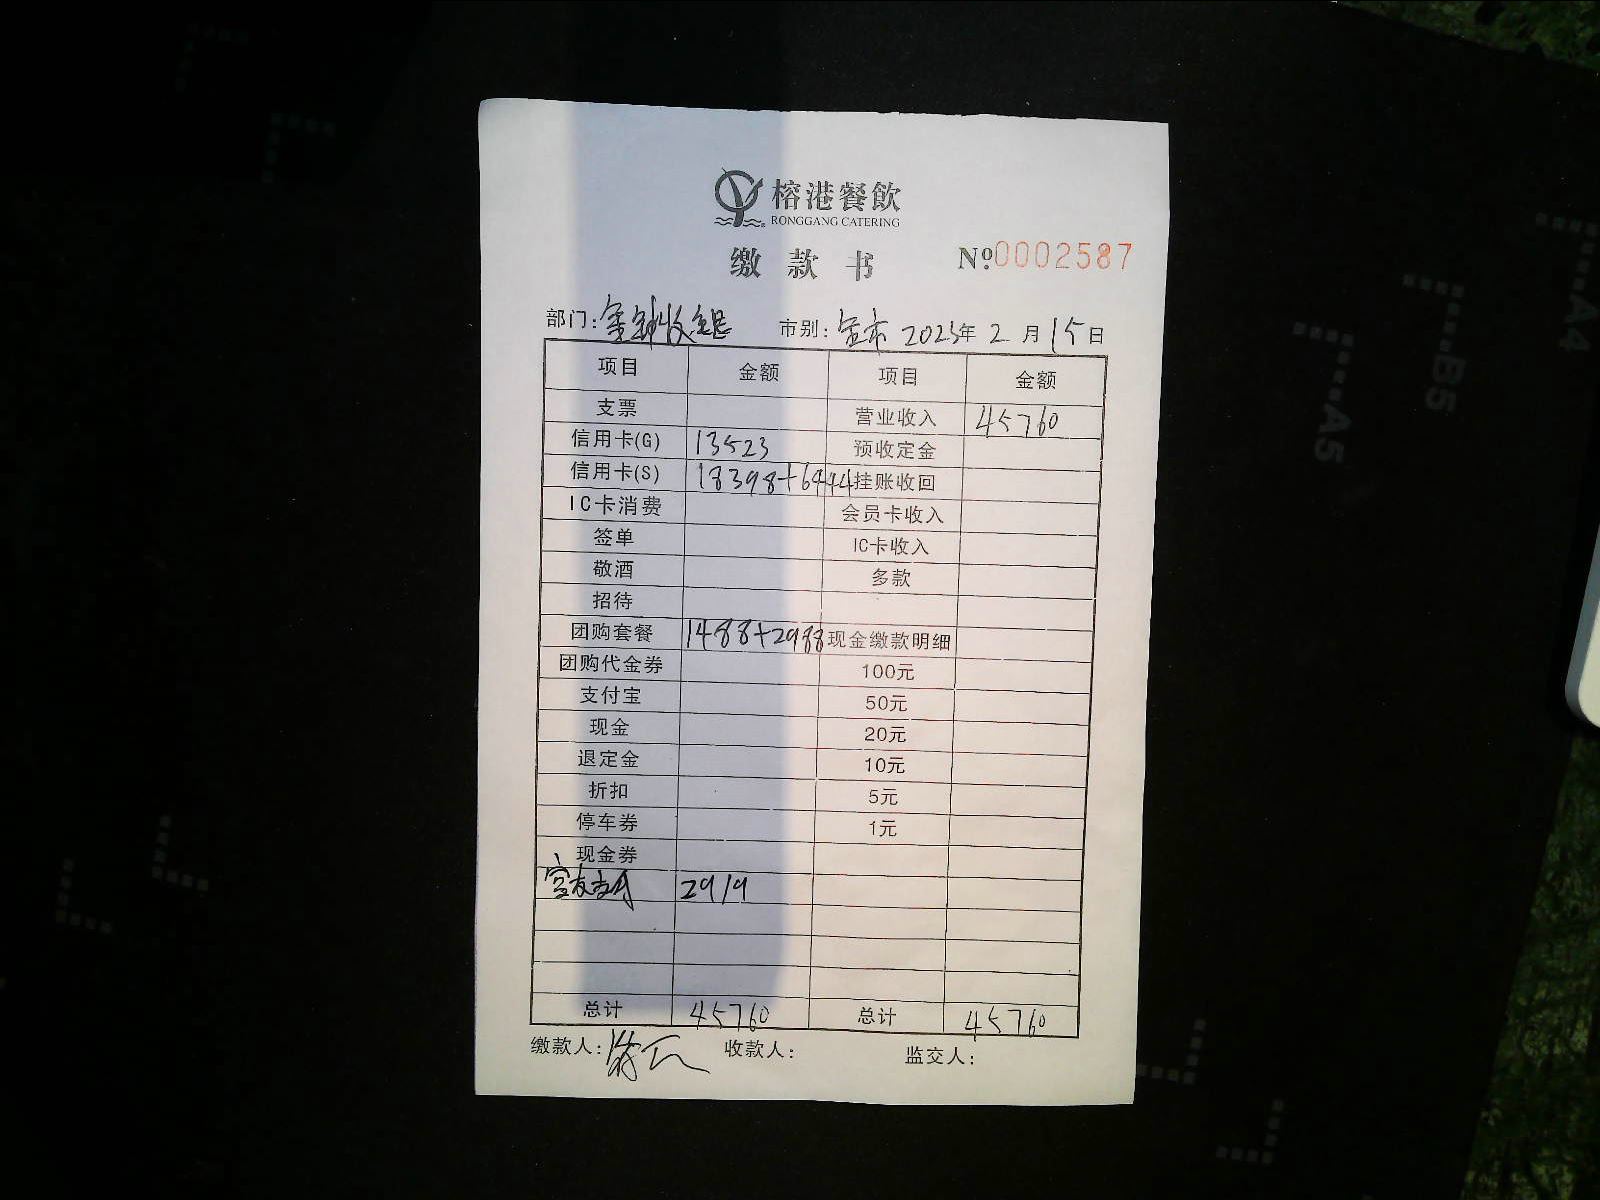 榕港餐飲
RONGGANG CATERING
缴款书
Nº 0002587
部门: 市别: 全市 2023年 2月 15日
项目 金额 项目 金额
支票 营业收入 45760
信用卡(G) 13523 预收定金
信用卡(S) 18398+6444 挂账收回
IC卡消费 会员卡收入
签单 IC卡收入
敬酒 多款
招待
团购套餐 1488+2988 现金缴款明细
团购代金券 100元
支付宝 50元
现金 20元
退定金 10元
折扣 5元
停车券 1元
现金券
支付 2919
总计 45760 总计 45760
缴款人: 收款人: 监交人:
A4
B5
A5